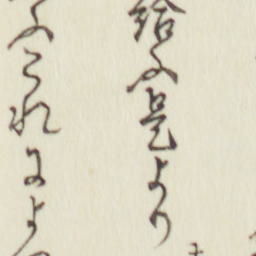 給ふ是より
ふこれによ